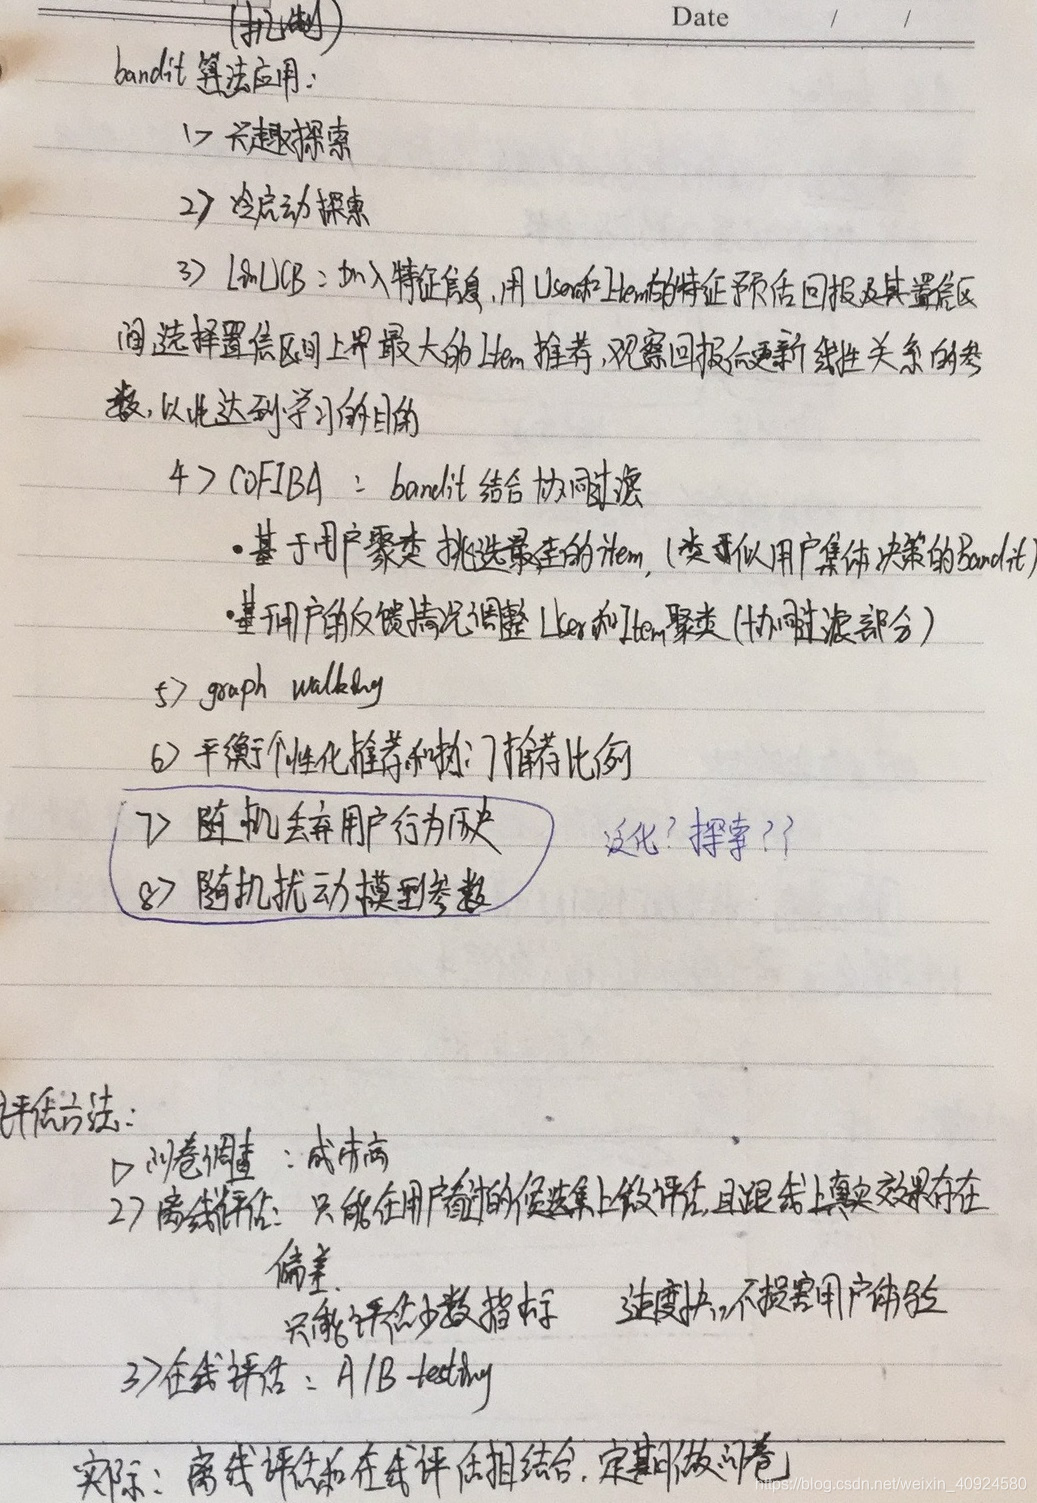 Date / /
(机制)
bandit 算法应用:
1> 兴趣探索
2> 冷启动探索
3> LinUCB:加入特征信息,用User和Item的特征预估回报及其置信区
间选择置信区间上界最大的Item推荐,观察回报后更新线性关系的参
数,以此达到学习的目的
4> COFIBA : bandit 结合协同过滤
•基于用户聚类挑选最佳的item,(类似用户集体决策的Bandit)
•基于用户的反馈情况调整User和Item聚类(协同过滤部分)
5> graph walking
6> 平衡个性化推荐和热门推荐比例
7> 随机丢弃用户行为历史
泛化?探索??
8> 随机扰动模型参数
评估方法:
1> 问卷调查 :成本高
2> 离线评估:只能在用户看过的候选集上做评估,且跟线上真实效果存在
偏差.
只能评估少数指标 速度快,不损害用户体验
3>在线评估:A/B testing
实际:离线评估和在线评估相结合,定期做问卷
https://blog.csdn.net/weixin_40924580